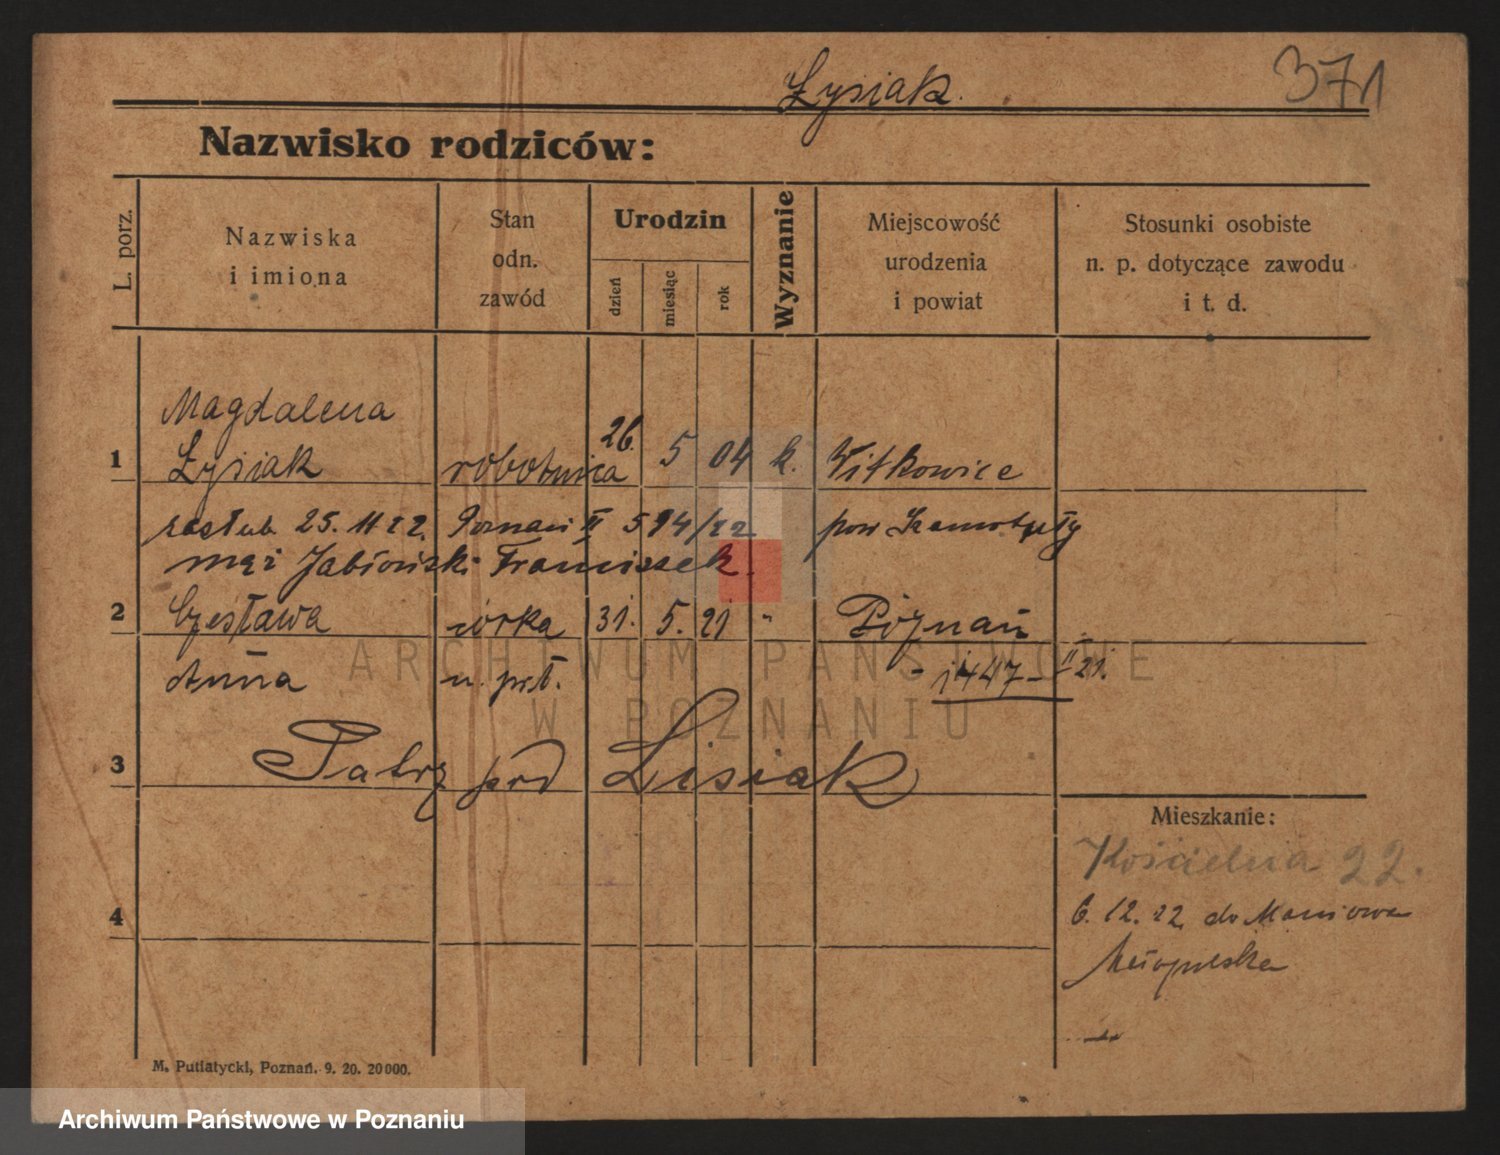 Łysiak.
371
Nazwisko rodziców:
L. porz.
Nazwiska
i imiona
Stan
odn.
zawód
Urodzin
dzień
miesiąc
rok
Wyznanie
Miejscowość
urodzenia
i powiat
Stosunki osobiste
n. p. dotyczące zawodu
i t. d.
Magdalena
1 Łysiak robotnica 26. 5 04 k. Witkowice
zaślub. 25. 11 22. Poznań II 594/22 pow Szamotuły
mąż Jabłoński Franciszek.
2 Czesława córka 31. 5. 21 " Poznań
Anna n. prł. - 1447 - II 21.
3 Patrz pod Lisiak
Mieszkanie:
Kościelna 22.
4
6. 12. 22 do Maniowa
Małopolska
M. Putiatycki, Poznań. 9. 20. 20000.
ARCHIWUM PAŃSTWOWE
W POZNANIU
Archiwum Państwowe w Poznaniu